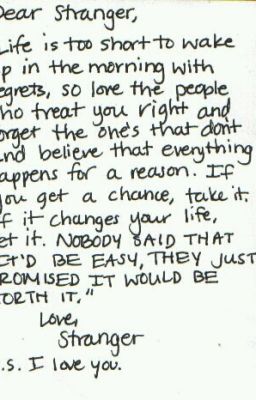 Dear Stranger,
Life is too short to wake
p in the morning with
egrets, so love the people
ho treat you right and
orget the one's that don't
nd believe that everything
appens for a reason. If
you get a chance, take it.
f it changes your life,
et it. NOBODY SAID THAT
IT'D BE EASY, THEY JUST
ROMISED IT WOULD BE
ORTH IT."
Love,
Stranger
.s. I love you.